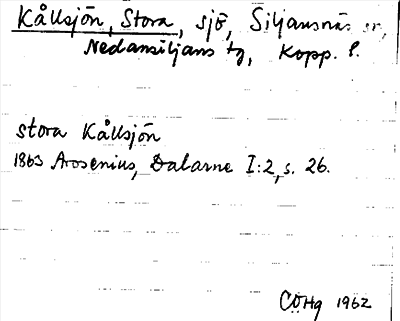 Kållsjön, Stora, sjö, Siljansnäs sn,
Nedansiljans tg, Kopp. l.
stora Kållsjön
1863 Arosenius, Dalarne I:2, s. 26.
COHg 1962